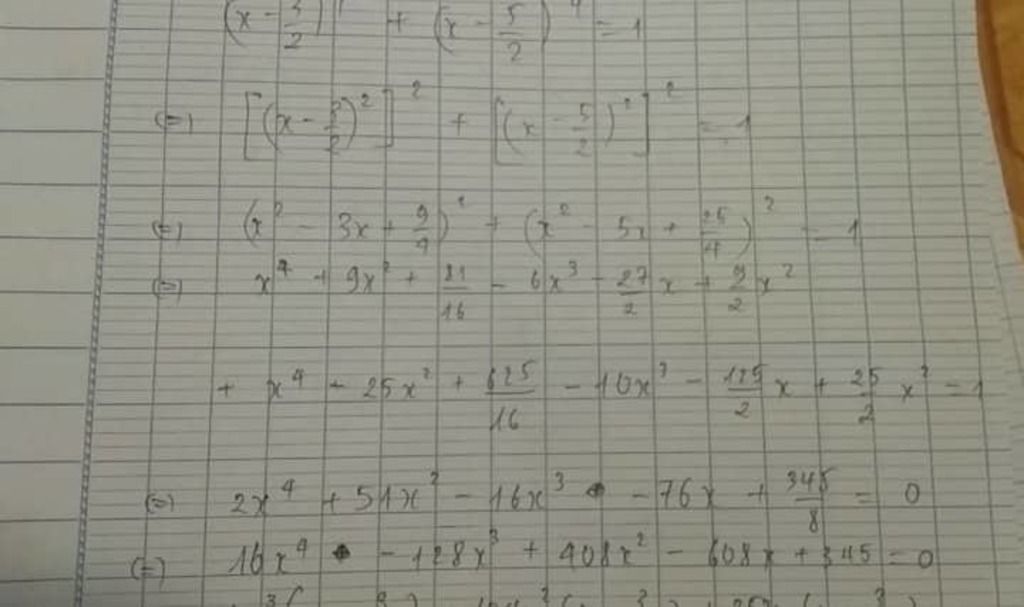 (x - 3/2)⁴ + (x - 5/2)⁴ = 1
(=) [(x - 3/2)²]² + [(x - 5/2)²]² = 1
(=) (x² - 3x + 9/4)² + (x² - 5x + 25/4)² = 1
(=) x⁴ + 9x² + 81/16 - 6x³ - 27/2 x + 9/2 x²
+ x⁴ + 25x² + 625/16 - 10x³ - 125/2 x + 25/2 x² = 1
(=) 2x⁴ + 51x² - 16x³ - 76x + 345/8 = 0
(=) 16x⁴ - 128x³ + 408x² - 608x + 345 = 0